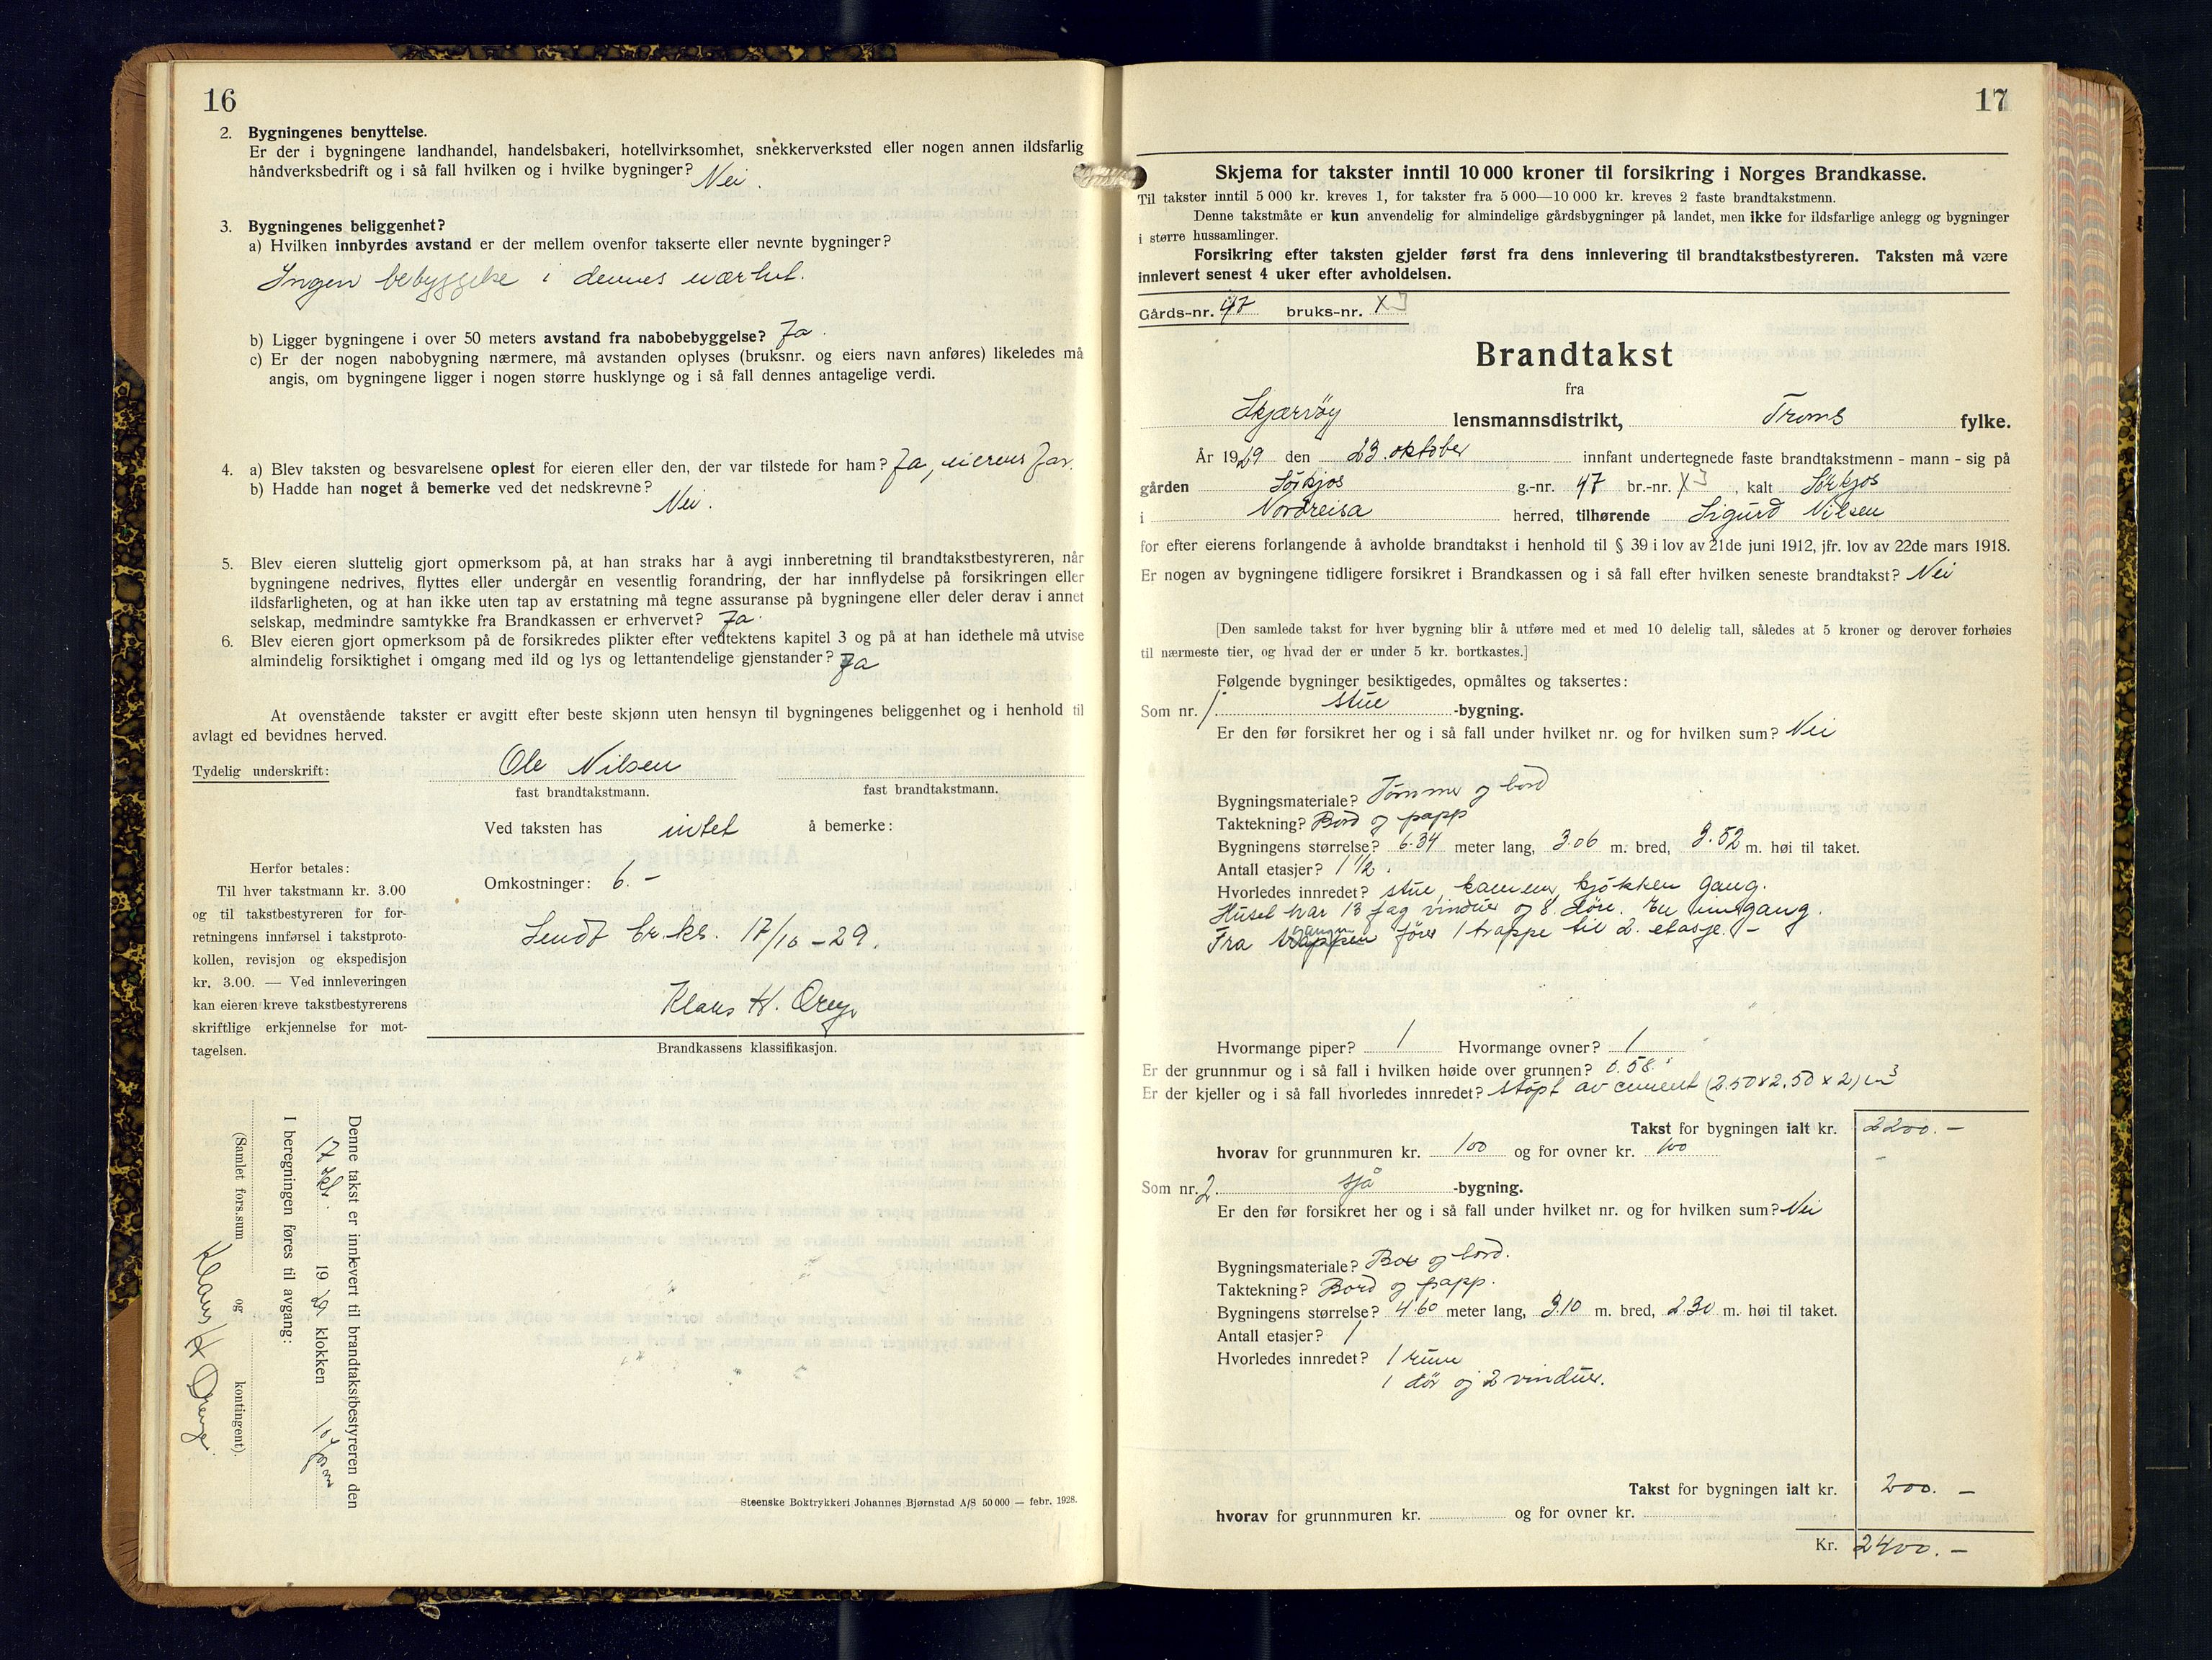 16
2. Bygningenes benyttelse.
Er der i bygningene landhandel, handelsbakeri, hotellvirksomhet, snekkerverksted eller nogen annen ildsfarlig
håndverksbedrift og i så fall hvilken og i hvilke bygninger? Nei.
3. Bygningenes beliggenhet?
a) Hvilken innbyrdes avstand er der mellem ovenfor takserte eller nevnte bygninger?
Ingen bebyggelse i dennes nærhet.
b) Ligger bygningene i over 50 meters avstand fra nabobebyggelse? Ja.
c) Er der nogen nabobygning nærmere, må avstanden oplyses (bruksnr. og eiers navn anføres) likeledes må
angis, om bygningene ligger i nogen større husklynge og i så fall dennes antagelige verdi.
4. a) Blev taksten og besvarelsene oplest for eieren eller den, der var tilstede for ham? Ja, eierens far.
b) Hadde han noget å bemerke ved det nedskrevne?
Nei.
5. Blev eieren sluttelig gjort opmerksom på, at han straks har å avgi innberetning til brandtakstbestyreren, når
bygningene nedrives, flyttes eller undergår en vesentlig forandring, der har innflydelse på forsikringen eller
ildsfarligheten, og at han ikke uten tap av erstatning må tegne assuranse på bygningene eller deler derav i annet
selskap, medmindre samtykke fra Brandkassen er erhvervet? Ja.
6. Blev eieren gjort opmerksom på de forsikredes plikter efter vedtektens kapitel 3 og på at han idethele må utvise
almindelig forsiktighet i omgang med ild og lys og lettantendelige gjenstander? Ja
At ovenstående takster er avgitt efter beste skjønn uten hensyn til bygningenes beliggenhet og i henhold til
avlagt ed bevidnes herved.
Tydelig underskrift: Ole Nilsen
fast brandtakstmann. fast brandtakstmann.
Ved taksten has intet å bemerke:
Herfor betales:
Til hver takstmann kr. 3.00
og til takstbestyreren for for-
retningens innførsel i takstproto-
kollen, revisjon og ekspedisjon
kr. 3.00. — Ved innleveringen
kan eieren kreve takstbestyrerens
skriftlige erkjennelse for mot-
tagelsen.
Omkostninger: 6.-
Sendt br.ks. 17/10 - 29.
Klaus H.
Brandkassens klassifikasjon.
Denne takst er innlevert til brandtakstbestyreren den
17 1929 klokken 10
I beregningen føres til avgang:
(Samlet fors.sum og kontingent).
Klaus H
Steenske Boktrykkeri Johannes Bjørnstad A/S 50 000 — febr. 1928.
17
Skjema for takster inntil 10 000 kroner til forsikring i Norges Brandkasse.
Til takster inntil 5 000 kr. kreves 1, for takster fra 5 000—10 000 kr. kreves 2 faste brandtakstmenn.
Denne takstmåte er kun anvendelig for almindelige gårdsbygninger på landet, men ikke for ildsfarlige anlegg og bygninger
i større hussamlinger.
Forsikring efter taksten gjelder først fra dens innlevering til brandtakstbestyreren. Taksten må være
innlevert senest 4 uker efter avholdelsen.
Gårds-nr. 47 bruks-nr. X
Brandtakst
fra
Skjærvøy lensmannsdistrikt, Troms fylke.
År 1929 den 23. oktober innfant undertegnede faste brandtakstmenn - mann - sig på
gården Sörkjos g.-nr. 47 br.-nr. X, kalt Sörkjos
i Nordreisa herred, tilhørende Sigurd Nilsen
for efter eierens forlangende å avholde brandtakst i henhold til § 39 i lov av 21de juni 1912, jfr. lov av 22de mars 1918.
Er nogen av bygningene tidligere forsikret i Brandkassen og i så fall efter hvilken seneste brandtakst? Nei
[Den samlede takst for hver bygning blir å utføre med et med 10 delelig tall, således at 5 kroner og derover forhøies
til nærmeste tier, og hvad der er under 5 kr. bortkastes.]
Følgende bygninger besiktigedes, opmåltes og taksertes:
Som nr. 1 stue -bygning.
Er den før forsikret her og i så fall under hvilket nr. og for hvilken sum? Nei
Bygningsmateriale? Tömmer og bord
Taktekning? Bord og papp
Bygningens størrelse? 6.34 meter lang, 3.06 m. bred, 3.52 m. høi til taket.
Antall etasjer? 1 1/2.
Hvorledes innredet? stue, kammer, kjökken gang.
Huset har 13 fag vinduer og 8 döre. En inngang.
Fra trappen gangen förer 1 trappe til 2. etasje. -
Hvormange piper? 1 Hvormange ovner? 1
Er der grunnmur og i så fall i hvilken høide over grunnen? 0.58
Er der kjeller og i så fall hvorledes innredet? Stöpt av cement (2.50 x 2.50 x 2) m3
Takst for bygningen ialt kr. 2200.-
hvorav for grunnmuren kr. 100 og for ovner kr. 100
Som nr. 2 sjå -bygning.
Er den før forsikret her og i så fall under hvilket nr. og for hvilken sum? Nei
Bygningsmateriale? og bord.
Taktekning? Bord og papp.
Bygningens størrelse? 4.60 meter lang, 3.10 m. bred, 2.30 m. høi til taket.
Antall etasjer? 1
Hvorledes innredet? 1 rum
1 dör og 2 vinduer.
Takst for bygningen ialt kr. 200.-
hvorav for grunnmuren kr. og for ovner kr.
Kr. 2400.-